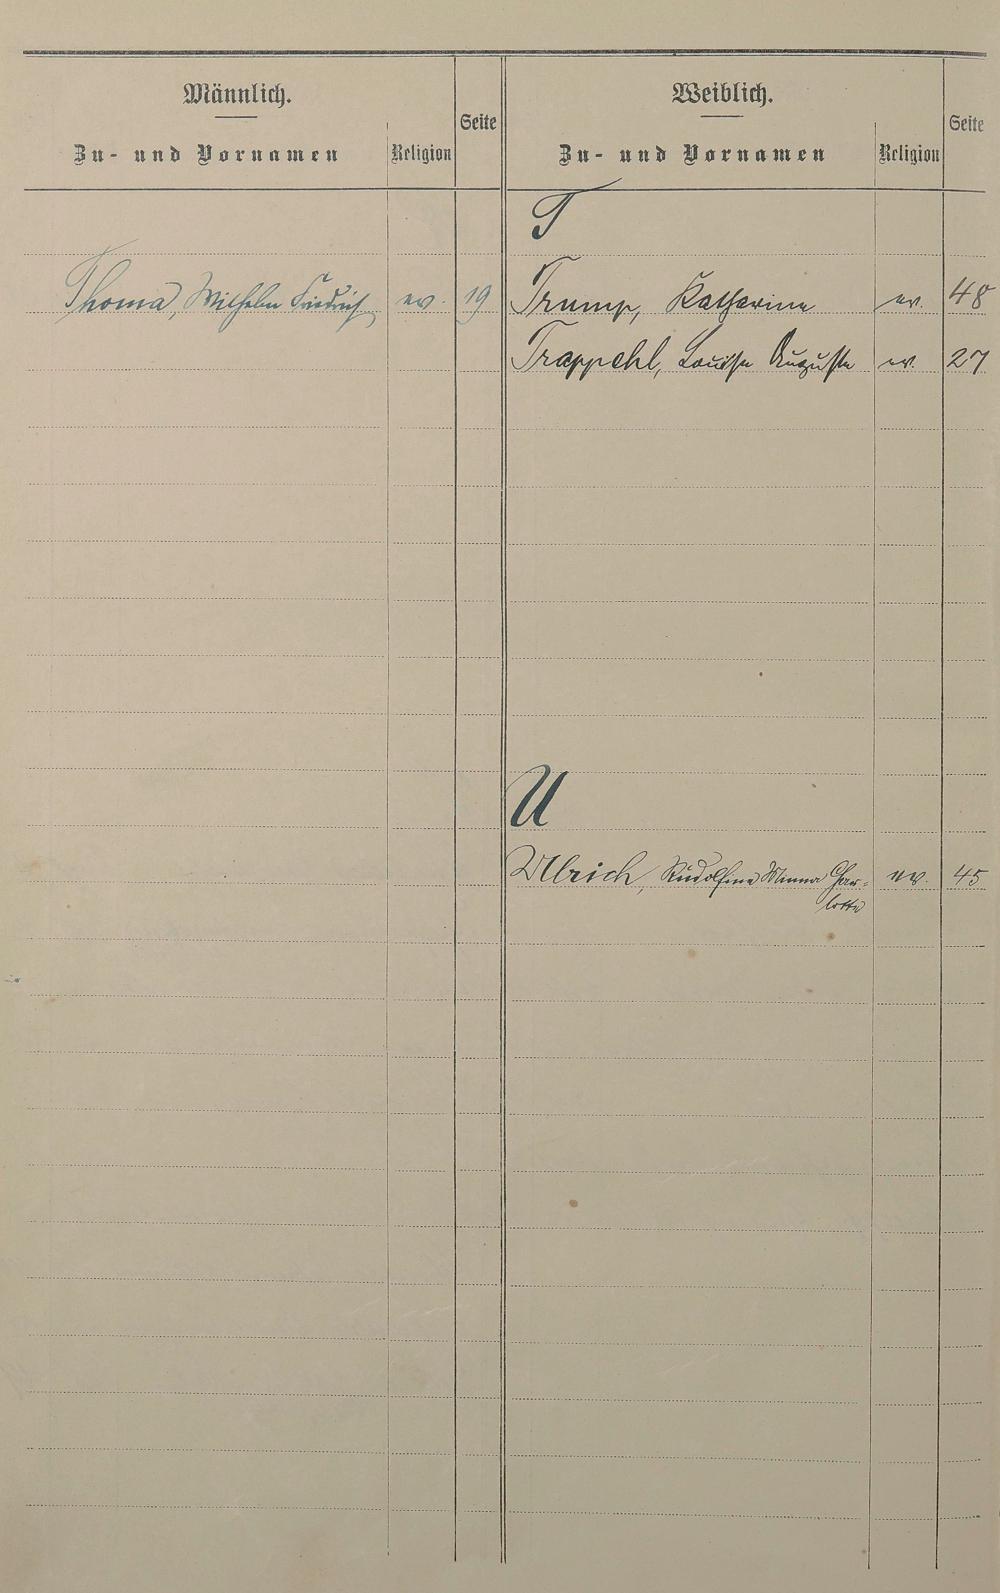 Männlich.
Weiblich.
Zu- und Vornamen
Religion
Seite
Zu- und Vornamen
Religion
Seite
T
Thoma, Wilhelm Friedrich
ev.
19
Trump, Katharina
ev.
48
Trappehl, Louise Auguste
ev.
27
U
Ulrich, Rudolfine Minna Char-
ev.
45
lotte